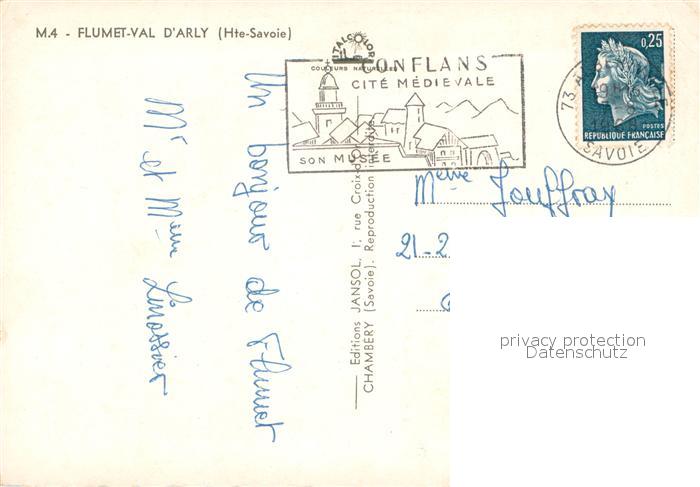 M.4 - FLUMET-VAL D'ARLY (Hte-Savoie)
ITALCOLOR
COULEURS NATURELLES
CONFLANS
CITÉ MÉDIÉVALE
SON MUSÉE
0,25
POSTES
REPUBLIQUE FRANÇAISE
73
SAVOIE
Un bonjour de Flumet
Mr et Mme Limossier
Editions JANSOL, 1, rue Croix-d'Or
CHAMBERY (Savoie). Reproduction interdite
Mme Jouffray
21-2
privacy protection
Datenschutz